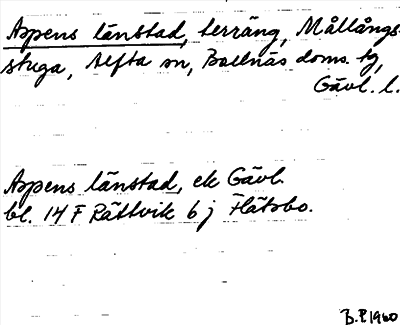 Aspens länstad, terräng, Mållångs-
stuga, Alfta sn, Bollnäs doms. tg,
Gävl. l.
Aspens länstad, ek Gävl.
bl. 14 F Rättvik 6 j Flätsbo.
B.P. 1960